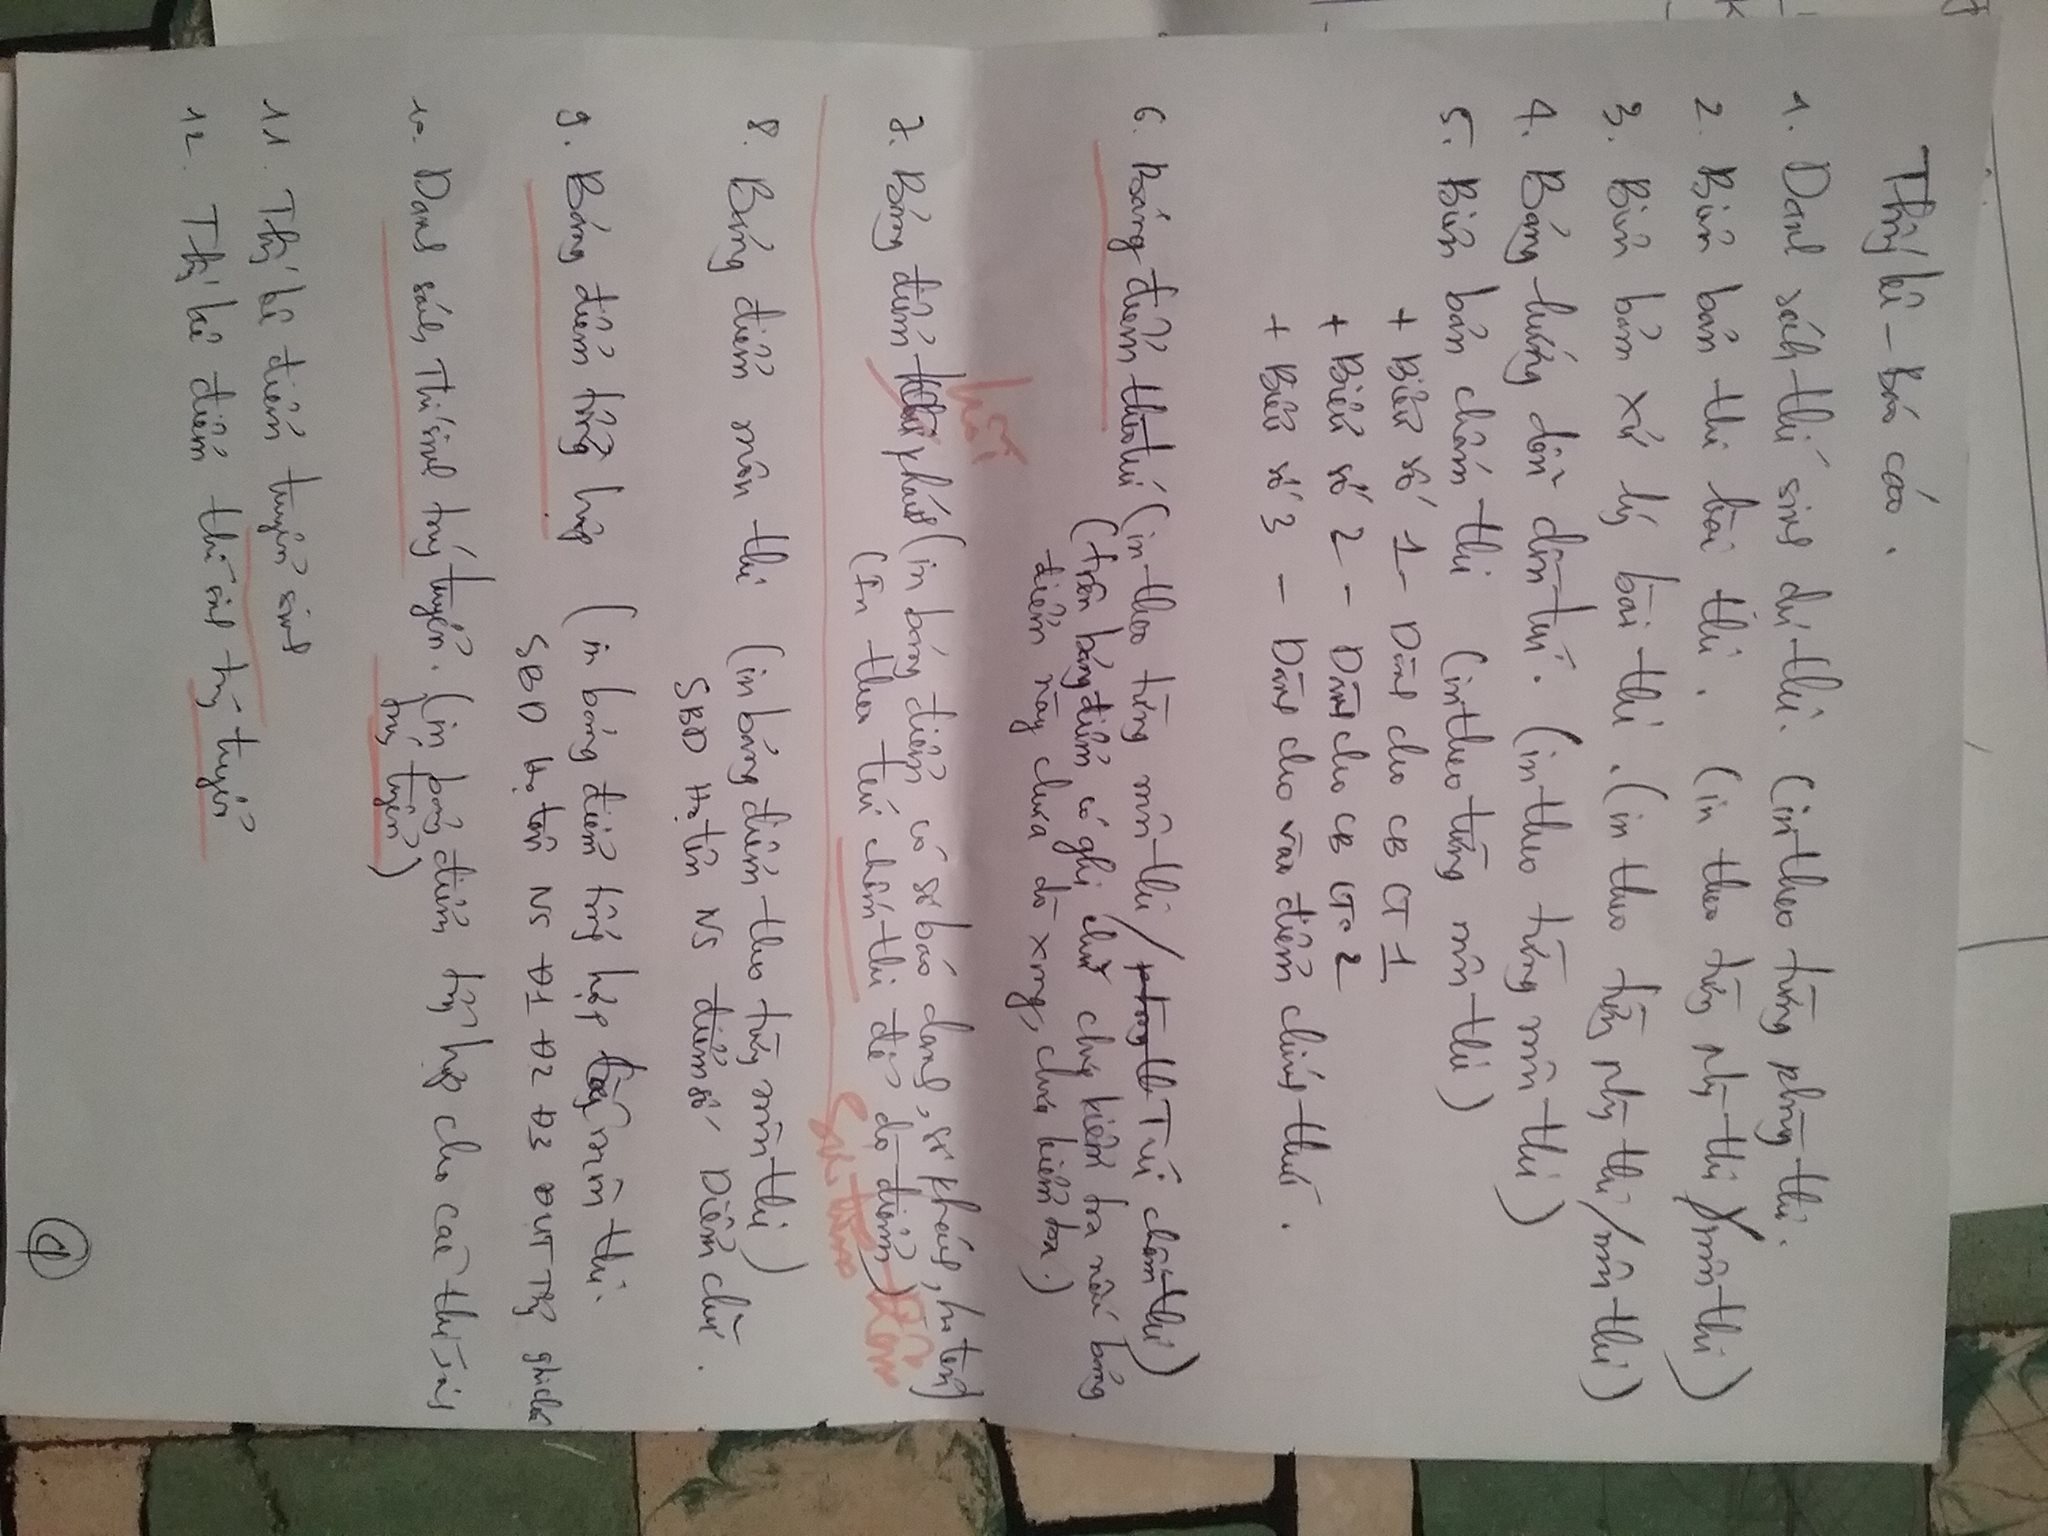 Thống kê - Báo cáo.
1. Danh sách thí sinh dự thi. (in theo từng phòng thi.
2. Biên bản thi bài thi. (in theo từng phòng thi / môn thi)
3. Biên bản xử lý bài thi. (in theo từng phòng thi / môn thi)
4. Bảng hướng dẫn dồn túi. (in theo từng môn thi)
5. Biên bản chấm thi (in theo từng môn thi)
+ Biên số 1 - Dành cho CB CT 1
+ Biên số 2 - Dành cho CB CT 2
+ Biên số 3 - Dành cho vào điểm chính thức.
6. Bảng điểm theo túi (in theo từng môn thi / Túi chấm thi)
(trên bảng điểm có ghi chưa kiểm tra nếu bảng
điểm này chưa dò xong, chưa kiểm tra.)
7. Bảng điểm phách (in bảng điểm có số báo danh, số phách, họ tên)
(In theo túi chấm thi để dò điểm)
8. Bảng điểm môn thi (in bảng điểm theo từng môn thi)
SBD Họ tên NS điểm số Điểm chữ.
9. Bảng điểm tổng hợp (in bảng điểm tổng hợp môn thi.
SBD Họ tên NS Đ1 Đ2 Đ3 ĐUT Tổng ghi chú
10. Danh sách Thí sinh trúng tuyển. (in bảng điểm tổng hợp cho các thí sinh
trúng tuyển)
11. Thống kê điểm tuyển sinh
12. Thống kê điểm thí sinh trúng tuyển
1